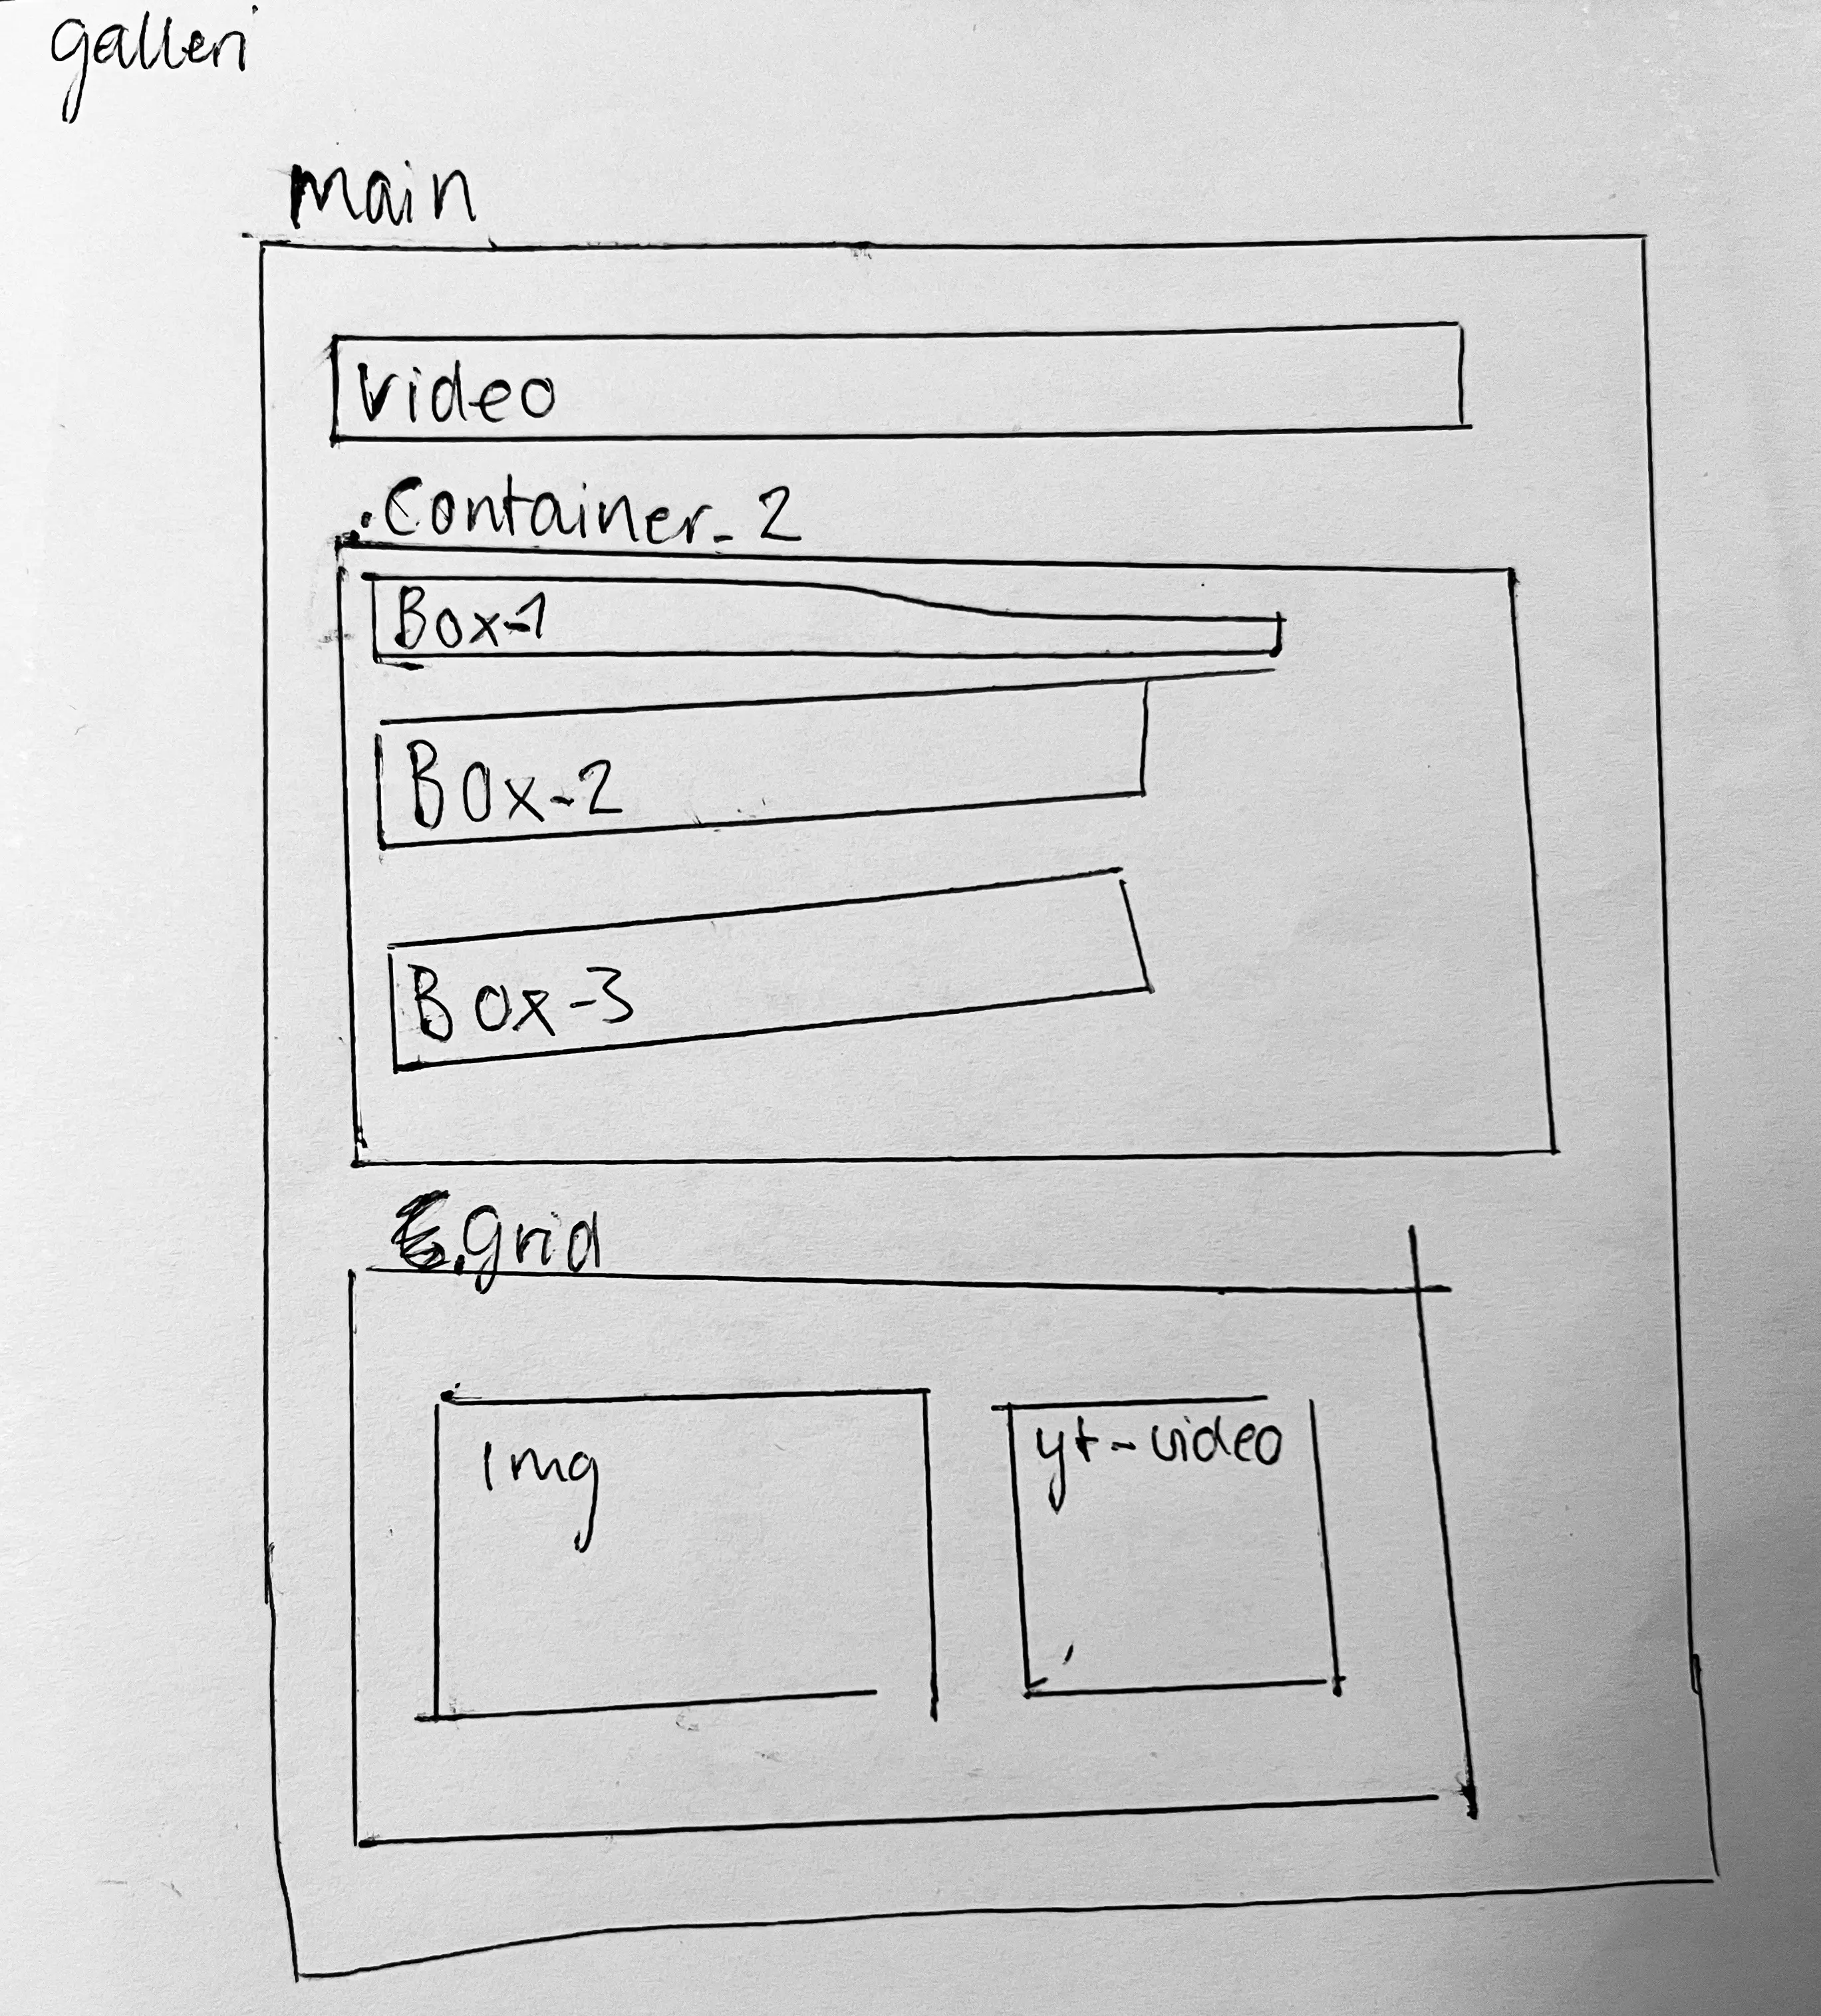 galleri
main
video
.Container_2
Box-1
Box-2
Box-3
.grid
img
yt-video